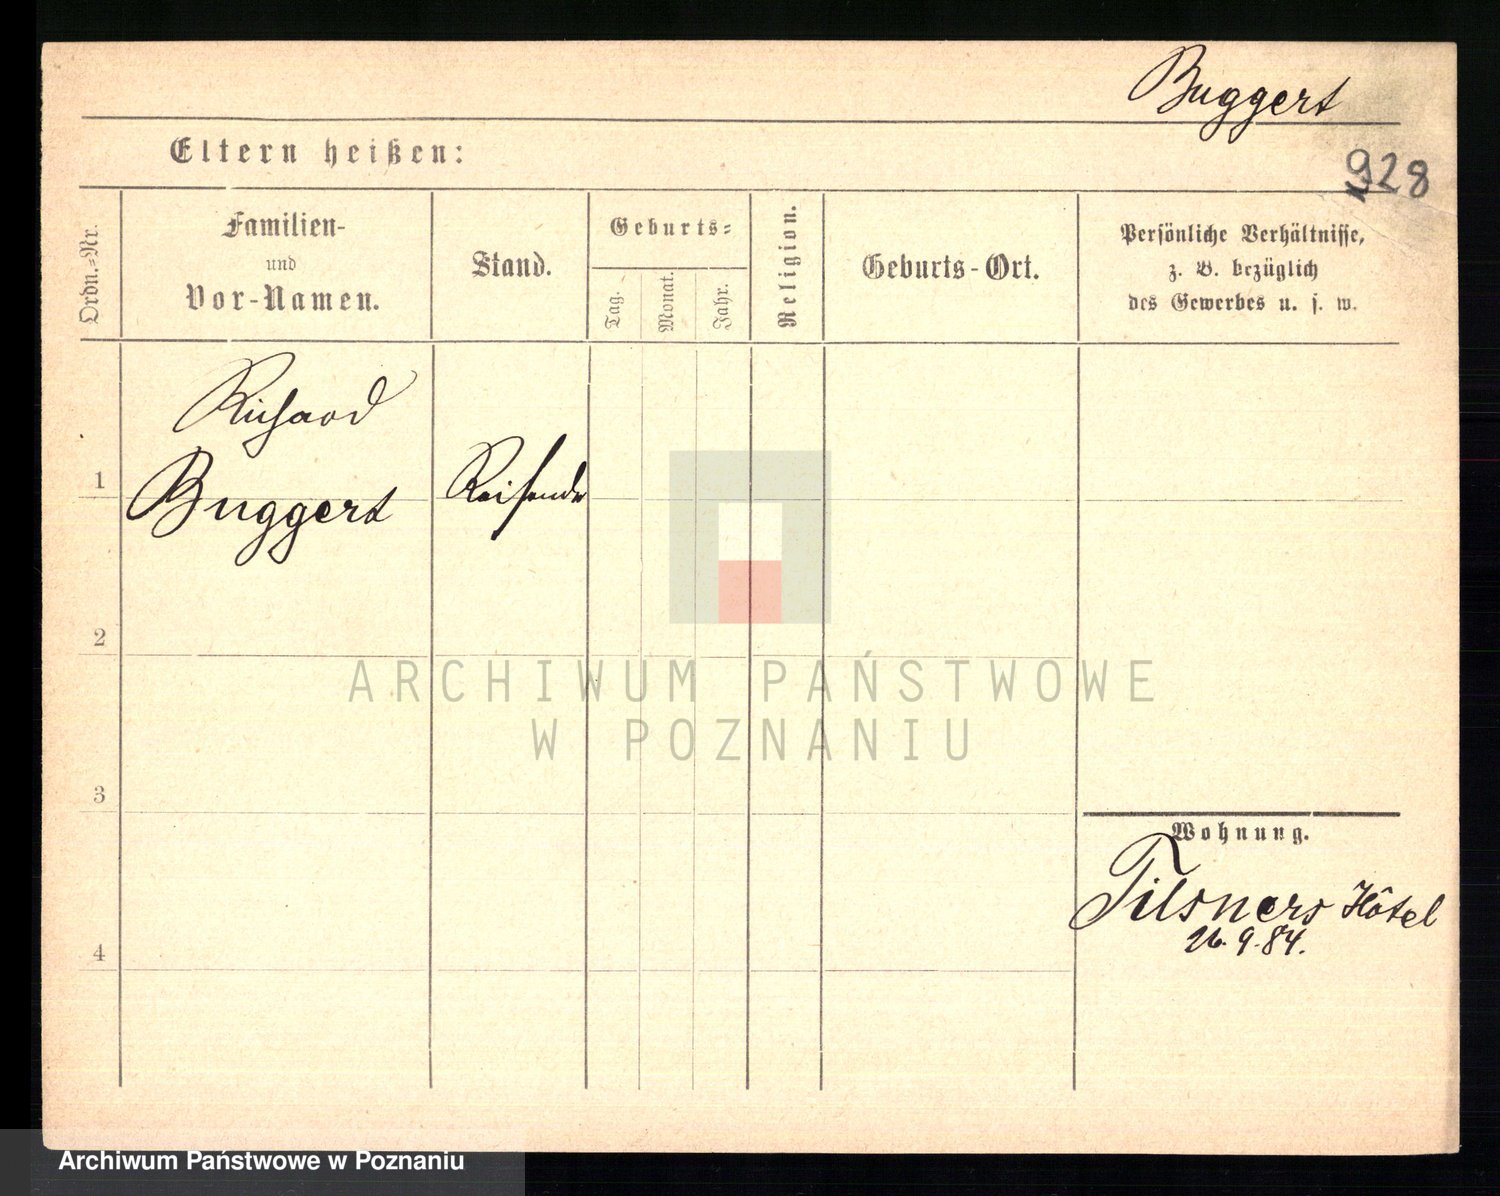 Buggert
928
Eltern heißen:
Ordn.-Nr.
Familien-
und
Vor-Namen.
Stand.
Geburts-
Tag.
Monat.
Jahr.
Religion.
Geburts-Ort.
Persönliche Verhältnisse,
z. B. bezüglich
des Gewerbes u. s. w.
Richard
1
Buggert
Reisender
2
ARCHIWUM PAŃSTWOWE
W POZNANIU
3
Wohnung.
Tilsners Hôtel
26.9.84.
4
Archiwum Państwowe w Poznaniu